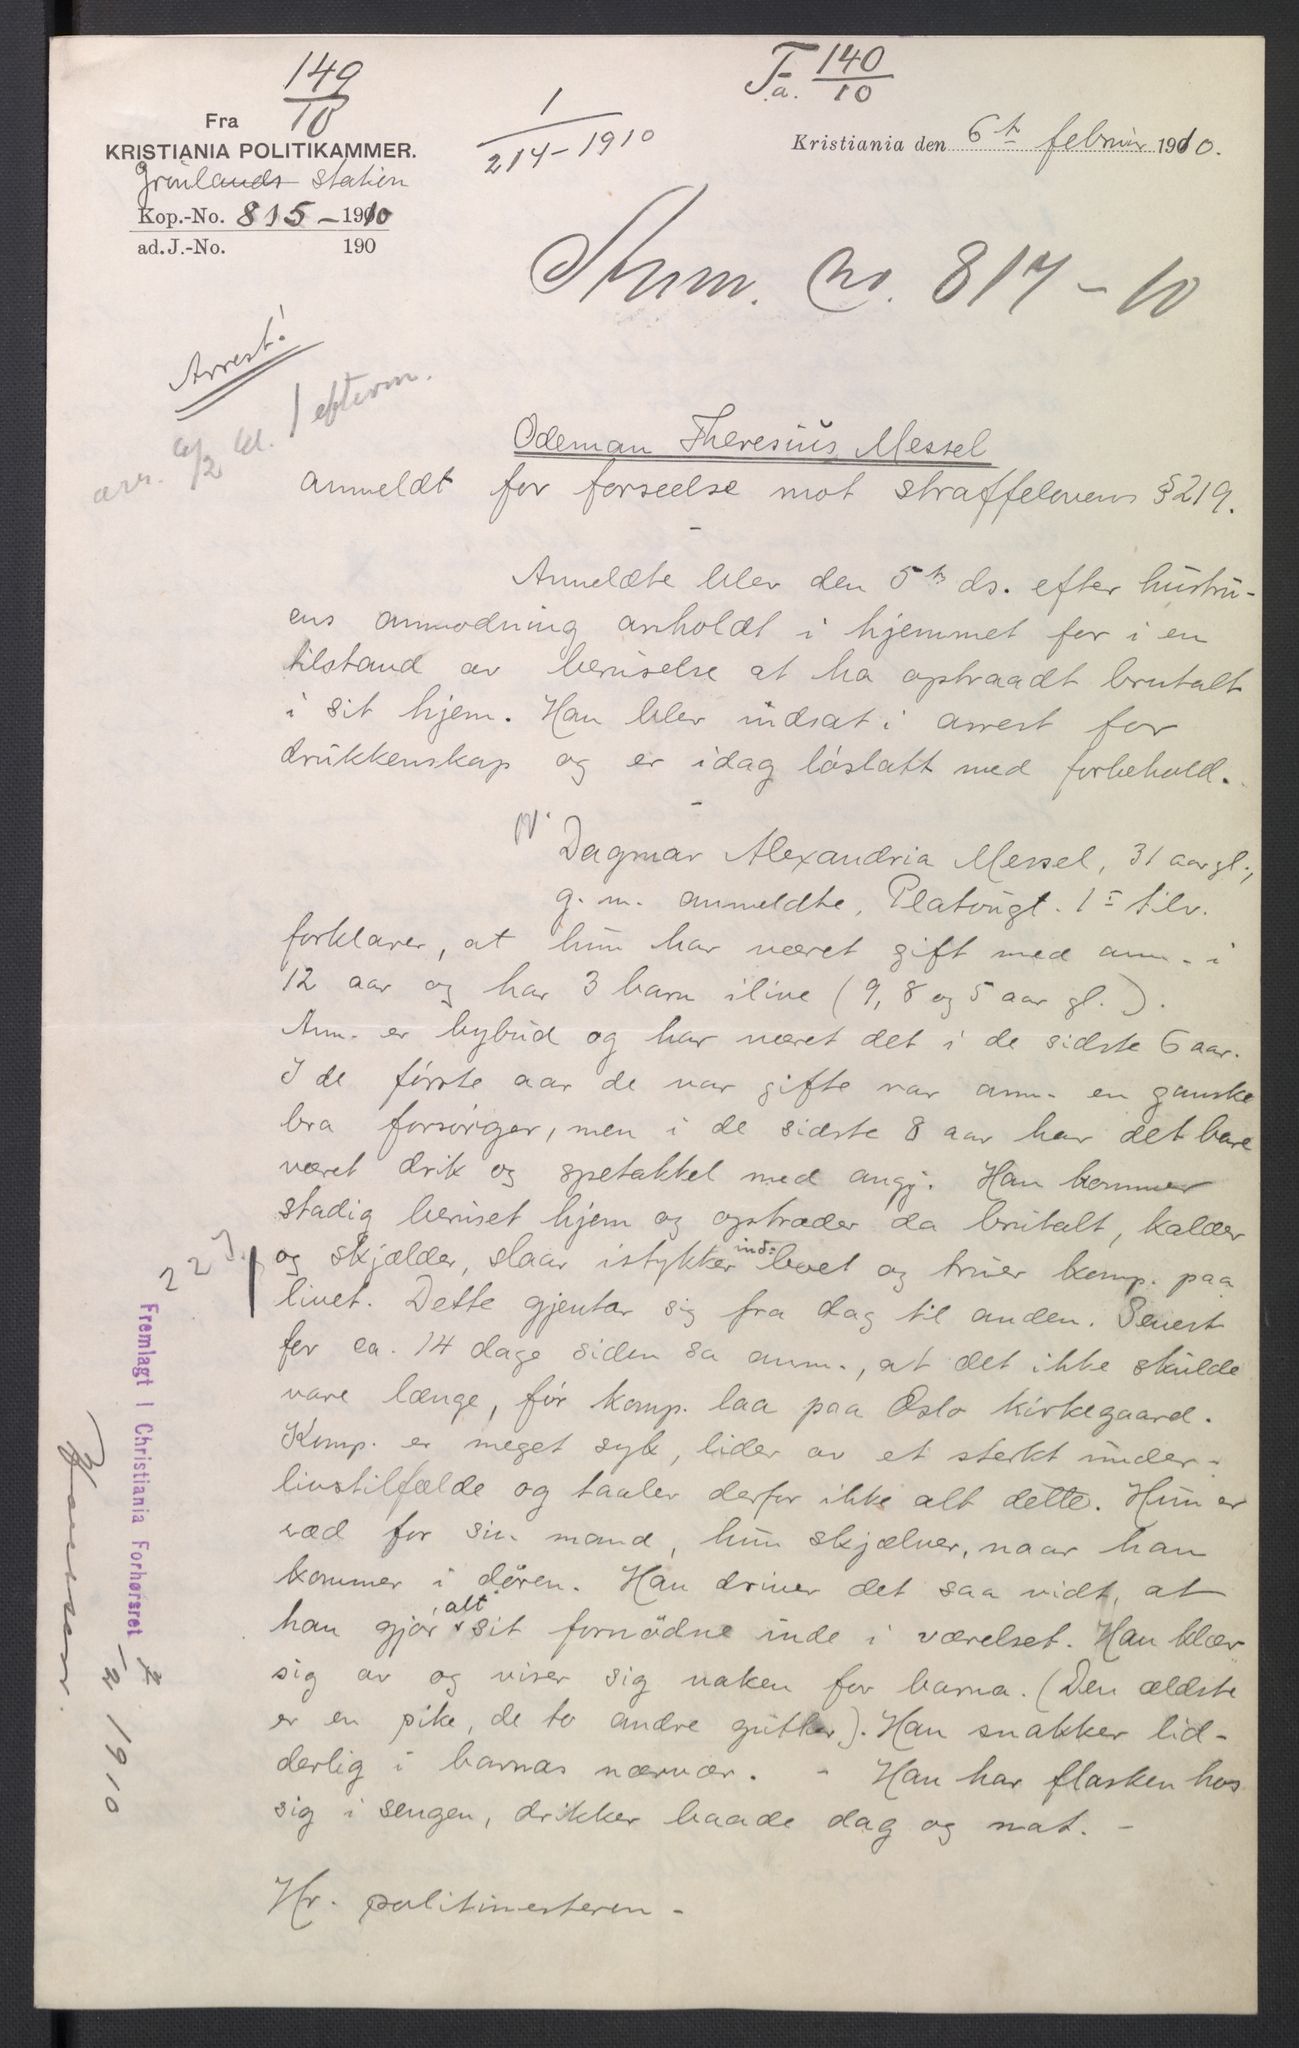 149
10
Fra
KRISTIANIA POLITIKAMMER.
Grønlands station
Kop.-No. 815 - 1910
ad. J.-No. 190
1
214-1910
F.a. 140
10
Kristiania den 6te februar 1910.
No. 817 - 10
Arrest!
arr. 6/2 kl. 1 efterm.
Odeman Theresius Messel
anmeldt for forseelse mot straffelovens § 219.
Anmeldte blev den 5te ds. efter hustru-
ens anmodning anholdt i hjemmet for i en
tilstand av beruselse at ha optraadt brutalt
i sit hjem. Han blev indsat i arrest for
drukkenskap og er idag løslatt med forbehold.
Dagmar Alexandria Messel, 31 aar gl.,
g. m. anmeldte, Platougt. 1 I tilv.
forklarer, at hun har været gift med anm. i
12 aar og har 3 barn ilive (9, 8 og 5 aar gl.).
Anm. er bybud og har været det i de sidste 6 aar.
I de første aar de var gifte var anm. en ganske
bra forsørger, men i de sidste 8 aar har det bare
været drik og spetakkel med angj. Han kommer
stadig beruset hjem og optræder da brutalt, kalder
og skjælder, slaar istykker indboet og truer komp. paa
livet. Dette gjentar sig fra dag til anden. Senest
for ca. 14 dage siden sa anm., at det ikke skulde
vare længe, før komp. laa paa Oslo kirkegaard.
Komp. er meget syk, lider av et sterkt under-
livstilfælde og taaler derfor ikke alt dette. Hun er
ræd for sin mand, hun skjælver, naar han
kommer i døren. Han driver det saa vidt, at
han gjør alt sit fornødne inde i værelset. Han klær
sig av og viser sig naken for barna. (Den ældste
er en pike, de to andre gutter). Han snakker lid-
derlig i barnas nærvær. - Han har flasken hos
sig i sengen, drikker baade dag og nat. -
Hr. politimesteren -
Fremlagt i Christiania Forhørsret 7/2 1910